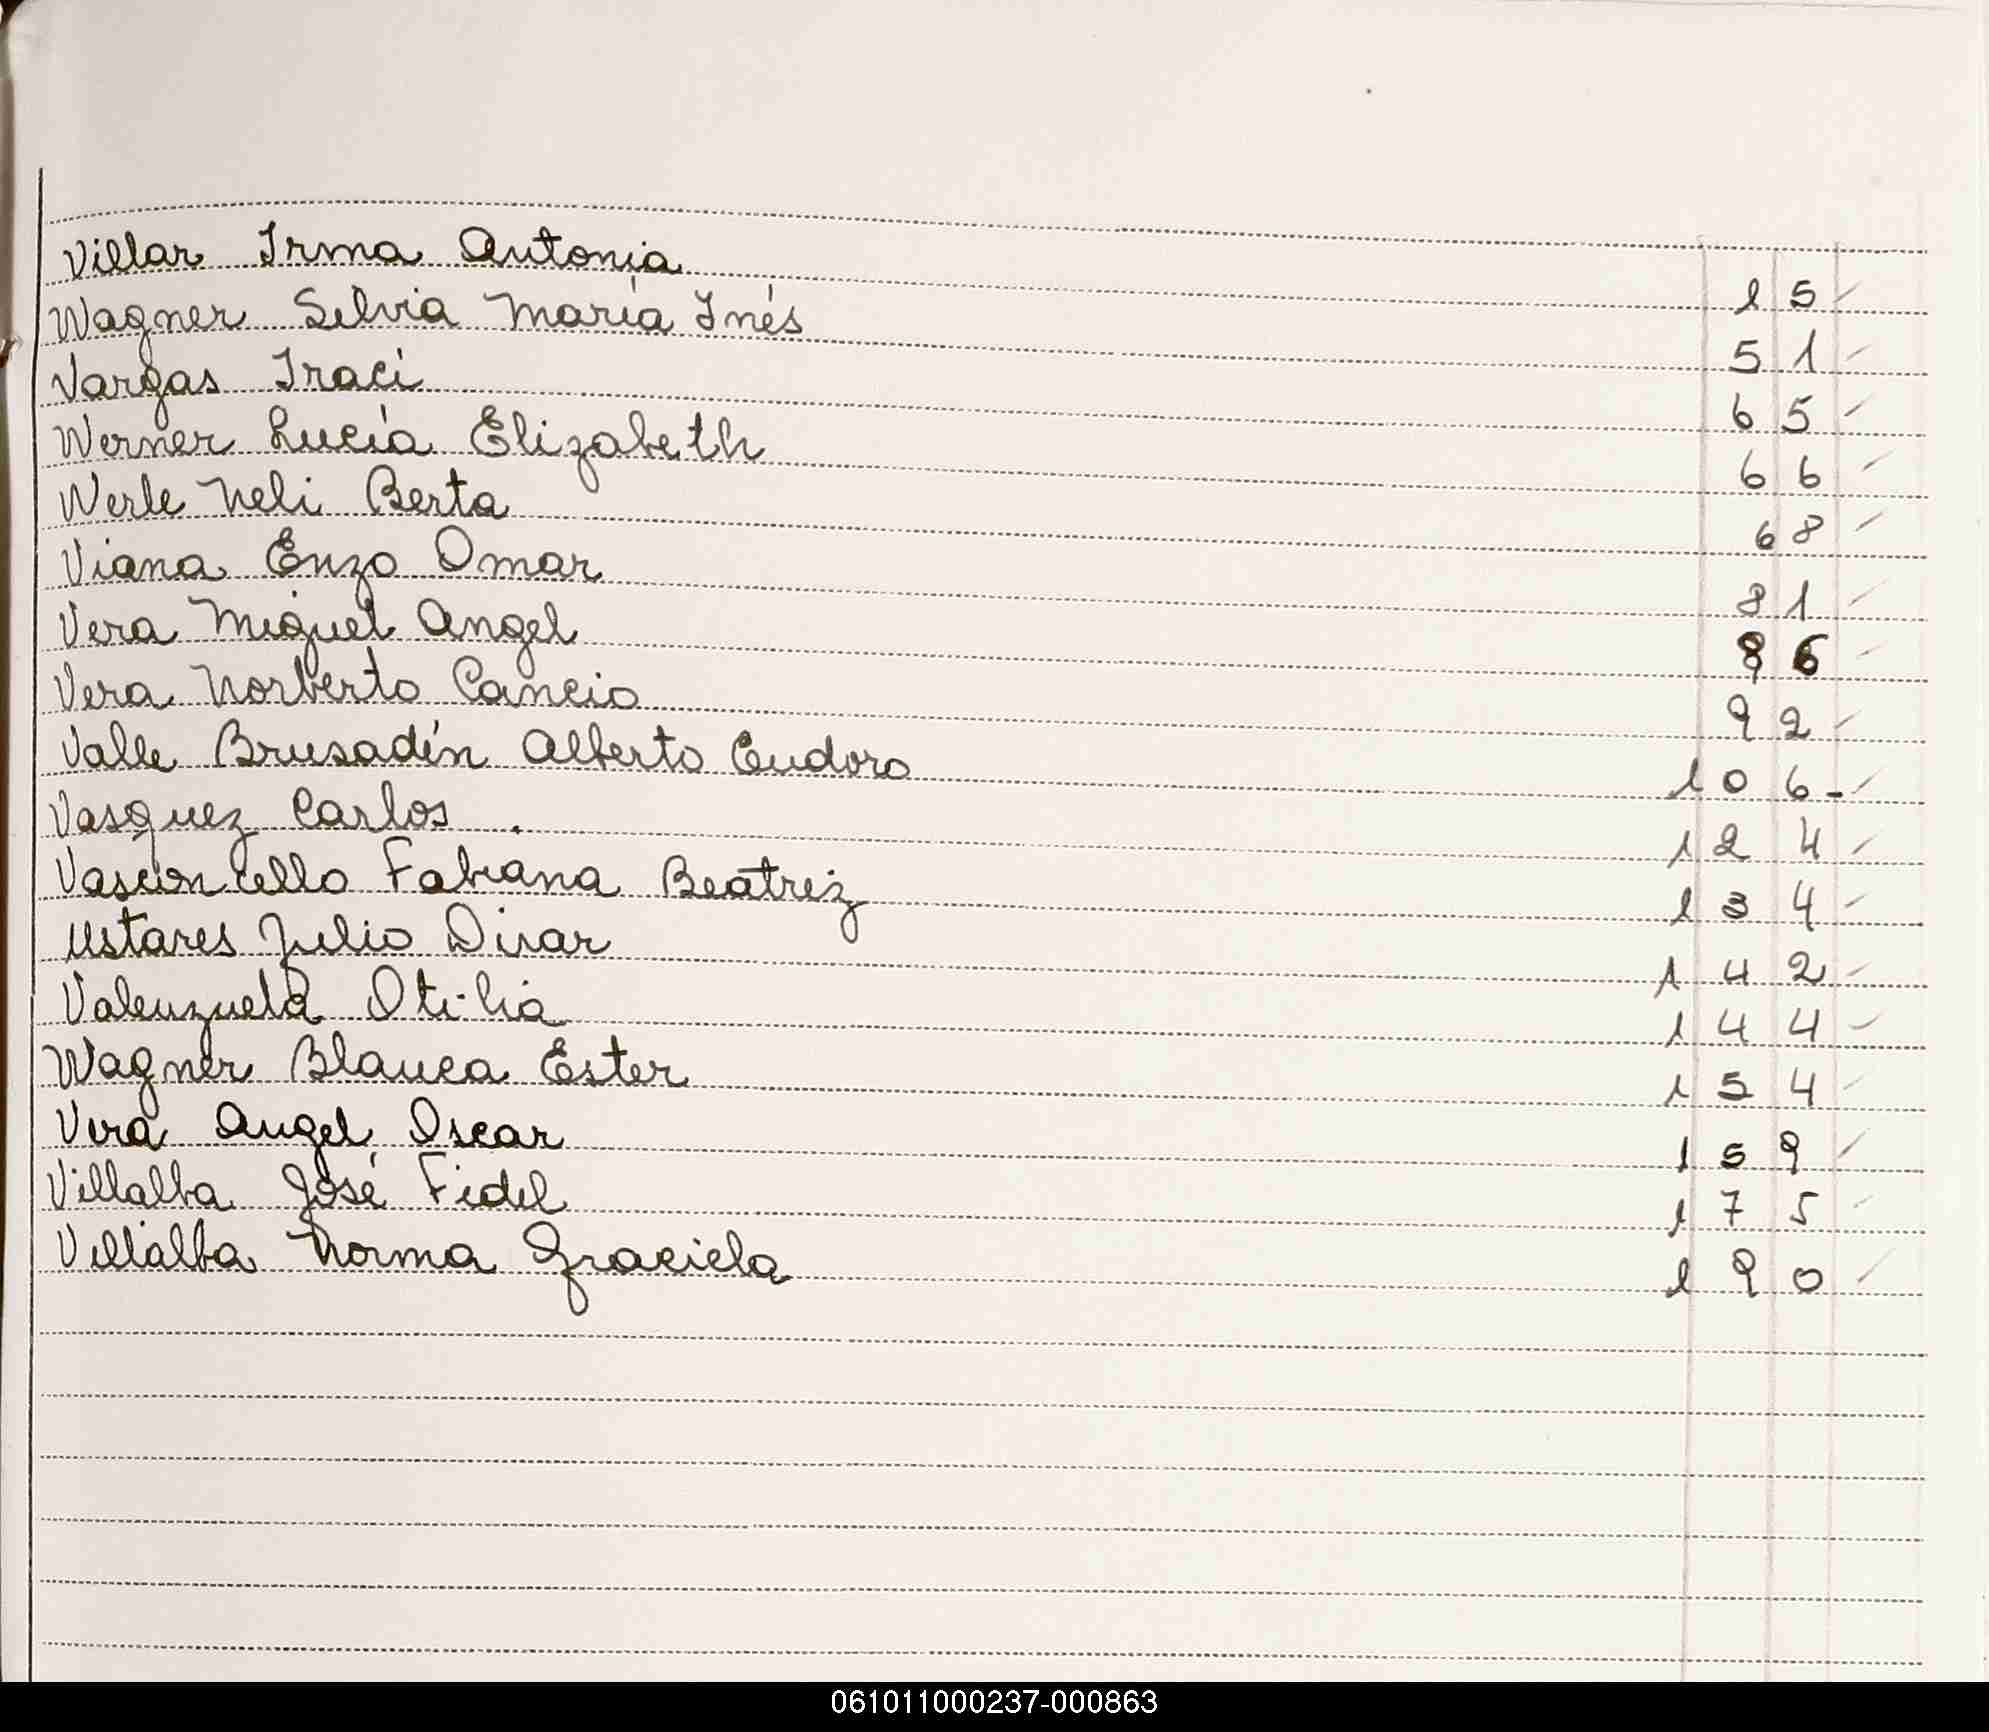 Villar Irma Antonia 15
Wagner Silvia María Inés 51
Vargas Iraci 65
Werner Lucía Elizabeth 66
Werle Neli Berta 68
Viana Enzo Omar 81
Vera Miguel Angel 86
Vera Norberto Cancio 92
Valle Brusadín Alberto Eudoro 106
Vasquez Carlos 124
Vasconcello Fabiana Beatriz 134
Ustares Julio 142
Valenzuela Otilia 144
Wagner Blanca Ester 154
Vera Angel Oscar 159
Villalba José Fidel 175
Villalba Norma Graciela 190
061011000237-000863